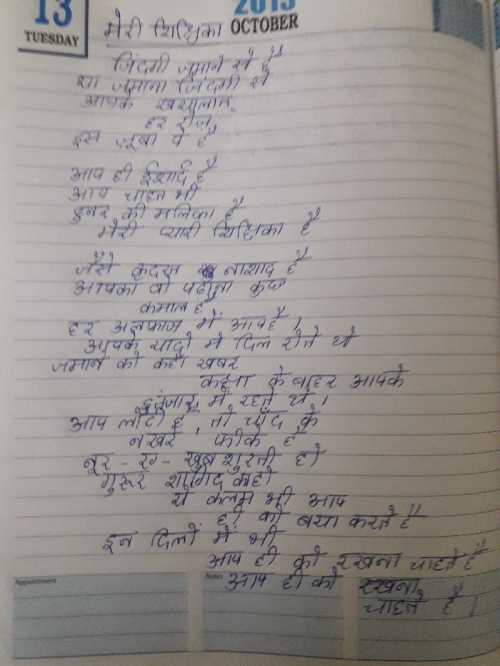 13 2015
TUESDAY OCTOBER
मेरी शिक्षिका
जिंदगी जमाने से है
या जमाना जिंदगी से
आपके खयालात
हर रोज,
इस जुबा पे है
आप ही ईर्शाद है
आप चाहत भी
हुनर की मलिका है
मेरी प्यारी शिक्षिका है
जैसे कुदरत नाशाद है
आपका वो पढाना कुछ
कमाल है
हर अलफाज में आपहै ।
आपके यादो में दिल रोते थे
जमाने को कहा खबर
कक्षा के बाहर आपके
इंतजार में रहते थे ।
आप लौटी है, तो चाँद के
नखरे फीके है
नूर - रंग - खुबसुरती हो
गुरूर शागिर्द कहो
ये कलम भी आप
ही को बया करते है
इन दिलों में भी
आप ही को रखना चाहते है
आप ही को रखना
चाहते है ।
Appointment Notes